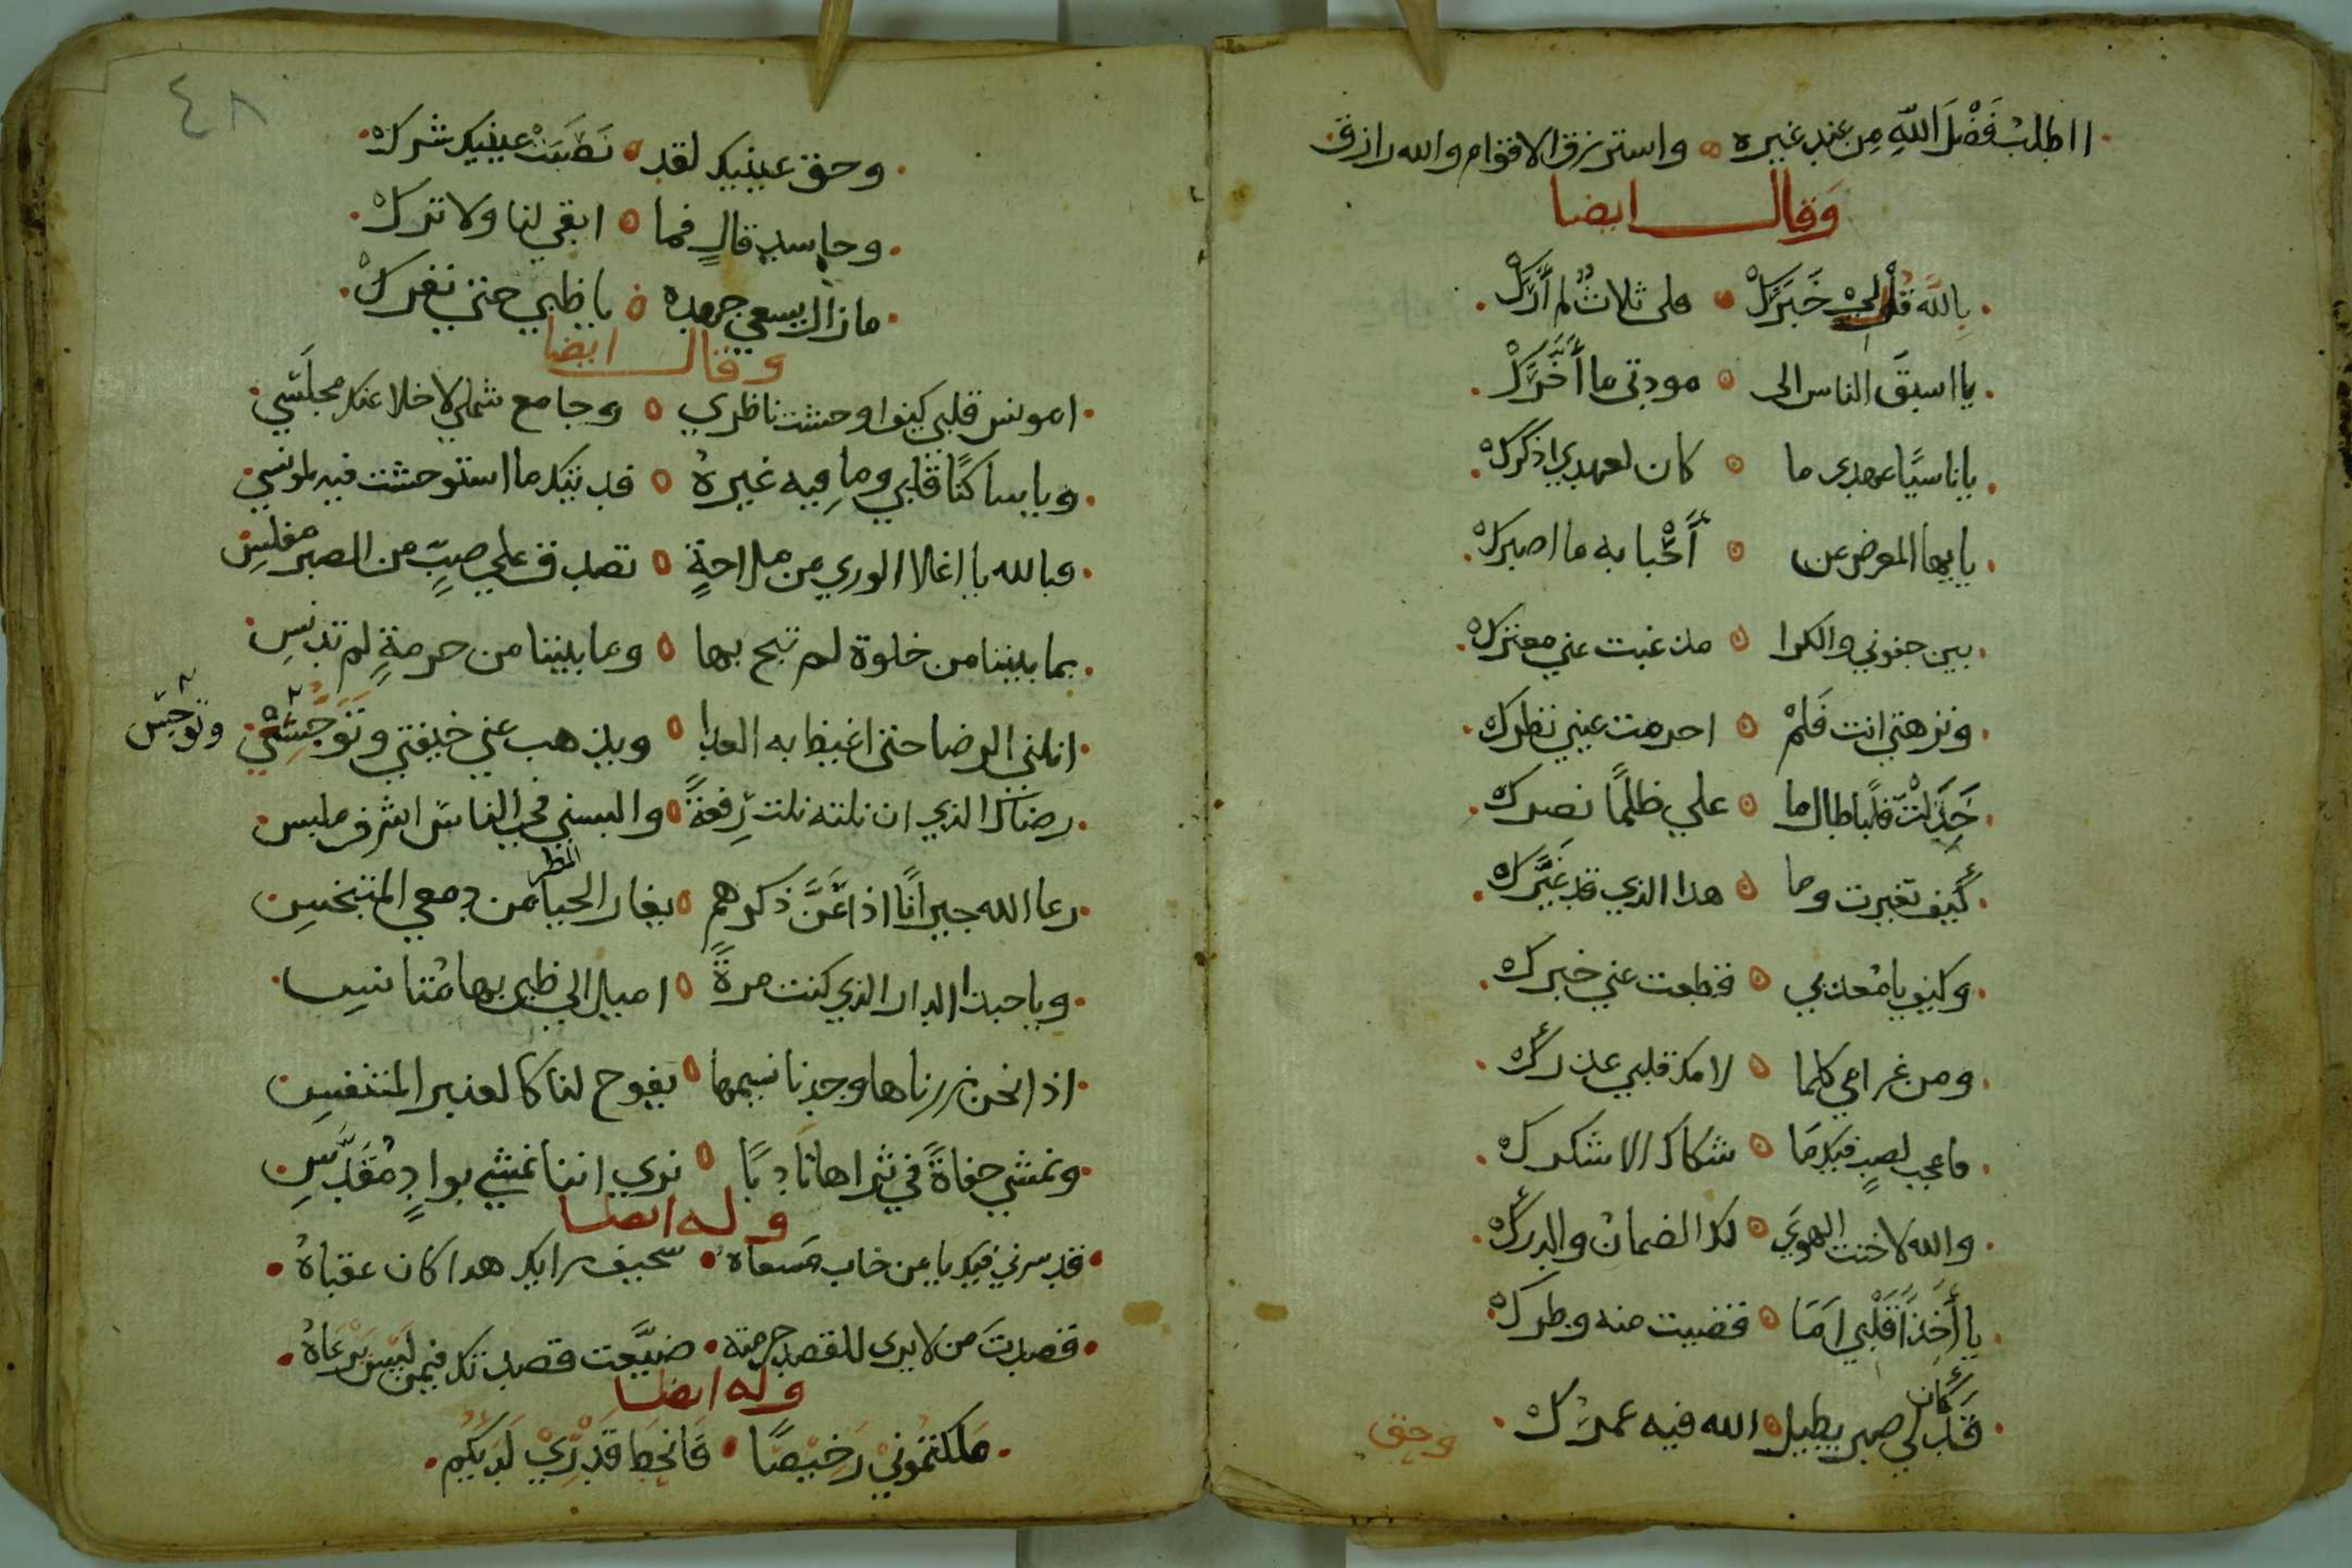 ااطلب فَضْلَ اللّهِ مِن عند غيره ه واسترزق الاقوام والله رازق
وَقال ايضا
بِاللّه قل لي خَبَرَكْ ه على ثلاث لم أَرَكْ
يا اسبقَ الناس الى ه مودتي ما أَخَّرَكْ
يا ناسيًا عهدي ما ه كان لعهدي اذكرك
يا ايها المعرض عن ه أَحْبابه ما اصبرك
بين جفوني والكرا ه مذ غبت عني معترك
ونزهتي انت فَلمْ ه احرمت عيني نظرك
قلبا طال ما ه علي ظلمًا نصرك
كَيف تغيرت وما ه هذا الذي قد غيَّرك
وكيف يا مُعذبي ه قطعت عني خبرك
ومن غرامي كلما ه لامك قلبي عذرك
فاعجب لصبٍ فيك مَا ه شكاك الا شكرك
والله لا خنت الهوي ه لك الضمان والدرك
يا أَخذاً قَلْبي اَمَا ه قضيت منه وطرك
قَد كان لي صبر يطيل ه الله فيه عمرك
وحق
٤٨
وحق عينيك لقد ه نَصَبَتْ عينيك شرك
وحاسدٍ قال فما ه ابقي لنا ولا ترك
ما زال يسعي جهده ه يا ظبي حتى نفرك
وقال ايضا
امونس قلبي كيف اوحشت ناظري ه وجامع شملي لا خلا عنك مجلَسي
ويا ساكنًا قلبي وما فيه غيره ه فديتك ما استوحشت فيه لمونسي
فبالله يا اغلا الوري من ملاحةٍ ه تصدق علي صبٍّ من الصبر مفلسِ
بما بيننا من خلوة لم تبح بها ه وما بيننا من حرمةٍ لم تدنسِ
انلني الرضا حتى اغيظ به العدا ه ويذهب عني خيفتي وتَوَجُّسِي
وتوجس
رضاك الذي ان نلته نلت رِفعةً ه والبسني في الناس اشرف ملبس
رعا الله جيرانًا اذا عَنَّ ذكرهم ه يغار الحيا من دمعي المتبخس
المطر
ويا حبذا الدار الذي كنت مرةً ه اميل الي ظبي بها مُتأنسِ
اذا نحن زرناها وجدنا نسيمها ه يفوح لنا كالعنبر المتنفس
ونمشي حفاةً في ثراها تادبًا ه نري اننا نمشي بوادٍ مُقَدَّسِ
وله ايضا
قد سرني فيك يا من خاب مَسعاه سخيف رايك هدا كان عقباهُ
قصدتَ من لا يرى للقصد حرمته ضيَّعت قصدتك فيمن ليْس يَرعَاهُ
وله ايضا
مَلكتمُونيْ رَخيْصًا فَانحَط قَدْرِيْ لَدَيكُم